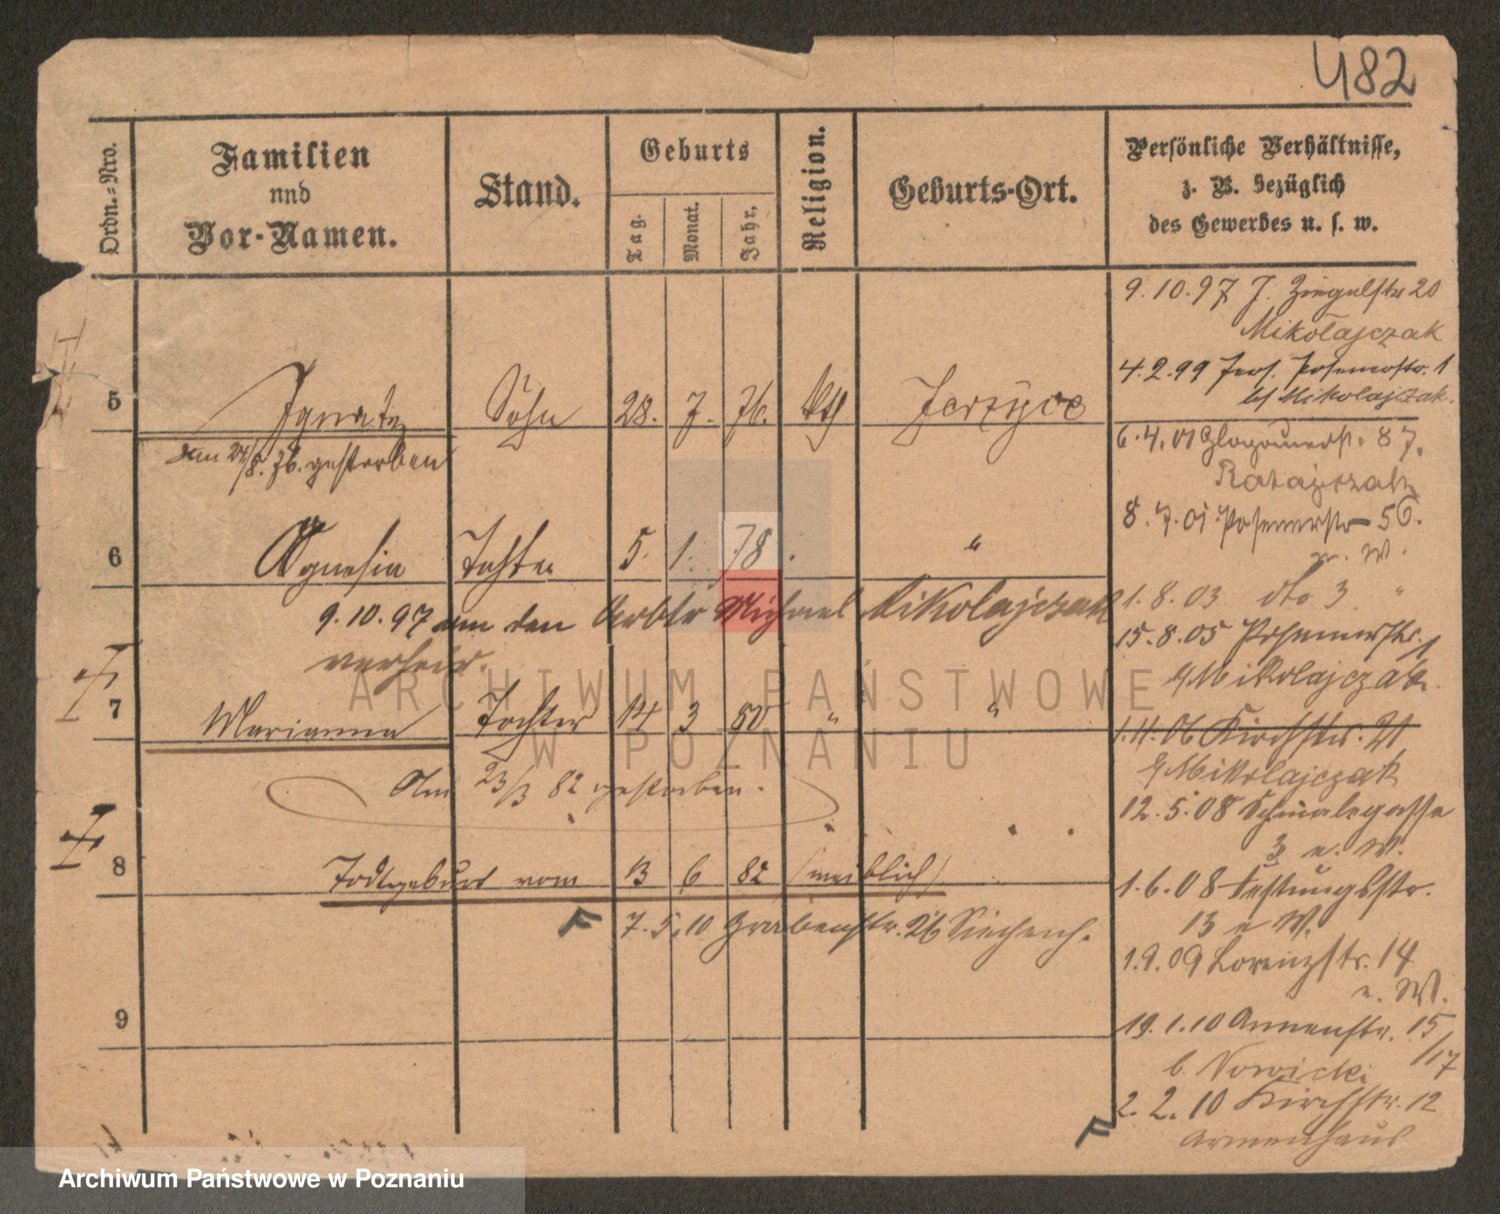 482
Ordn.-Nro.
Familien
und
Vor-Namen.
Stand.
Geburts
Tag.
Monat.
Jahr.
Religion.
Geburts-Ort.
Persönliche Verhältnisse,
z. B. bezüglich
des Gewerbes u. s. w.
5 Ignatz Sohn 28. 7. 76. kth Jerzyce
am 24/8. 76. gestorben
6 Agnesia Tochter 5. 1. 78 . "
9.10.97 an den Arbtr Michael Mikolajczak
verheir.
7 Marianna Tochter 14 3 80 " "
Am 23/3 82 gestorben.
8 Todtgeburt vom 13 6 82 (weiblich)
F 7.5.10 Grabenstr. 26 Siechenh.
9
9.10.97 J. Ziegelstr 20
Mikolajczak
4.2.99 Jers. Posenerstr. 1
b/ Mikolajczak.
6.4.01 Glogauerst. 87.
Ratajczak
8.7.01 Posenerstr 50.
e. W.
1.8.03 dto 3 "
15.8.05 Posenerstr. 1
b/ Mikolajczak.
1.11.06 Kirchstr. 21
b/ Mikolajczak
12.5.08 Schmalegasse
3 e. W.
1.6.08 Festungsstr.
13 e W.
1.9.09 Lorenzstr. 14
e. W.
19.1.10 Annenstr. 15/17
b. Nowicki
2.2.10 Kirchstr. 12
F Armenhaus
ARCHIWUM PAŃSTWOWE
W POZNANIU
Archiwum Państwowe w Poznaniu